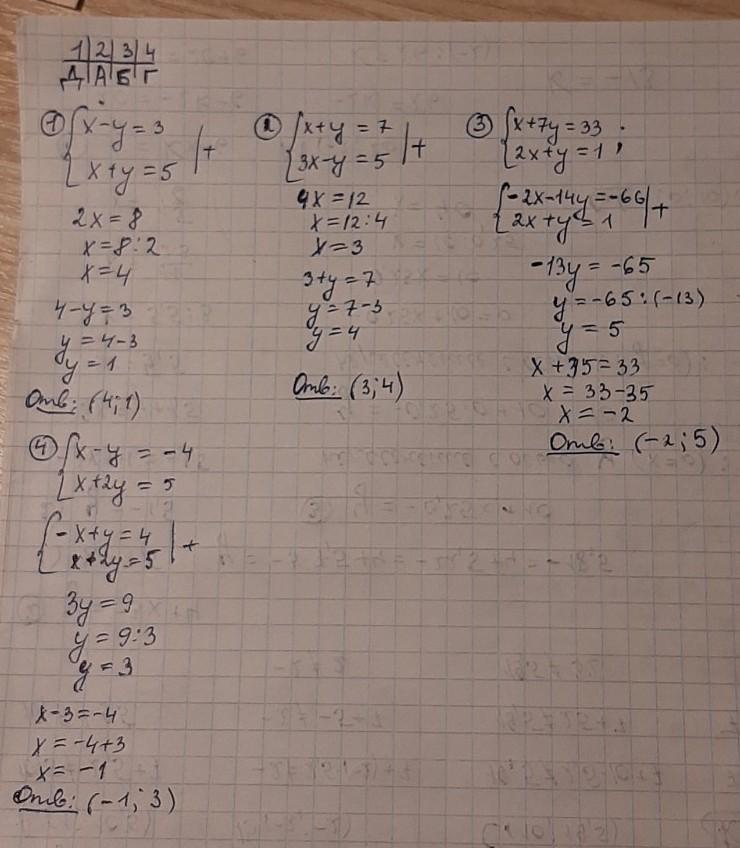 1 2 3 4
Д А Б Г
① { x-y=3
x+y=5 | +
2x=8
x=8:2
x=4
4-y=3
y=4-3
y=1
Отв: (4;1)
② { x+y=7
3x-y=5 | +
4x=12
x=12:4
x=3
3+y=7
y=7-3
y=4
Отв: (3;4)
③ { x+7y=33
2x+y=1 ;
{ -2x-14y=-66
2x+y=1 | +
-13y=-65
y=-65:(-13)
y=5
x+35=33
x=33-35
x=-2
Отв: (-2;5)
④ { x-y=-4
x+2y=5
{ -x+y=4
x+2y=5 | +
3y=9
y=9:3
y=3
x-3=-4
x=-4+3
x=-1
Отв: (-1;3)